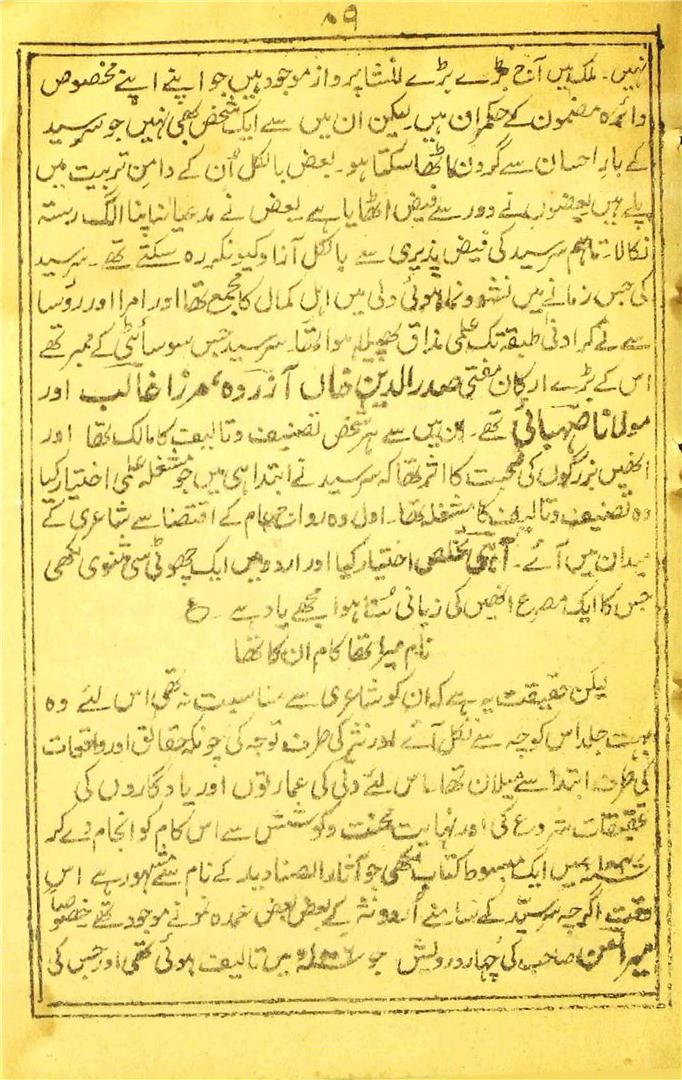 ۵۹
نہیں۔ ملک میں آج بڑے بڑے انشا پرداز موجود ہیں جو اپنے اپنے مخصوص
دائرہ مضمون کے حکمران ہیں لیکن ان میں سے ایک شخص بھی نہیں جو سرسید
کے بار احسان سے گردن اٹھا سکتا ہو۔ بعض بالکل اُن کے دامن تربیت میں
پلے ہیں بعضوں نے دور سے فیض اٹھایا ہے بعض نے مدعیانہ اپنا الگ رستہ
نکالا۔ تاہم سرسید کی فیض پذیری سے بالکل آزاد کیونکر رہ سکتے تھے۔ سرسید
کی جس زمانے میں نشوونما ہوئی دلی میں اہل کمال کا مجمع تھا اور امرا اور رؤسا
سے لے کر ادنیٰ طبقہ تک علمی مذاق پھیلا ہوا تھا۔ سرسید جس سوسائٹی کے ممبر تھے
اس کے بڑے ارکان مفتی صدرالدین خاں آزردہ، مرزا غالب اور
مولانا صہبائی تھے۔ ان میں سے ہر شخص تصنیف و تالیف کا مالک تھا اور
انھیں بزرگوں کی صحبت کا اثر تھا کہ سرسید نے ابتدا ہی میں جو مشغلہ علمی اختیار کیا
وہ تصنیف و تالیف کا مشغلہ تھا۔ اول وہ رواج عام کے اقتضا سے شاعری کے
میدان میں آئے۔ آہی تخلص اختیار کیا اور اردو میں ایک چھوٹی سی مثنوی لکھی
جس کا ایک مصرع انھیں کی زبانی سنا ہوا مجھے یاد ہے۔ ع
نام میرا تھا کام ان کا تھا
لیکن حقیقت یہ ہے کہ ان کو شاعری سے مناسبت نہ تھی اس لئے وہ
بہت جلد اس کوچہ سے نکل آئے اور نثر کی طرف توجہ کی چونکہ حقائق اور واقعات
کی طرف ابتدا سے میلان تھا۔ اس لئے دلی کی عمارتوں اور یادگاروں کی
تحقیقات شروع کی اور نہایت محنت و کوشش سے اس کام کو انجام دے کر
میں ایک مبسوط کتاب لکھی جو آثار الصنادید کے نام سے مشہور ہے اس
وقت اگرچہ سرسید کے سامنے اردو نثر کے بعض بعض عمدہ نمونے موجود تھے خصوصاً
میر امن صاحب کی چہار درویش جو میں تالیف ہوئی تھی اور جس کی